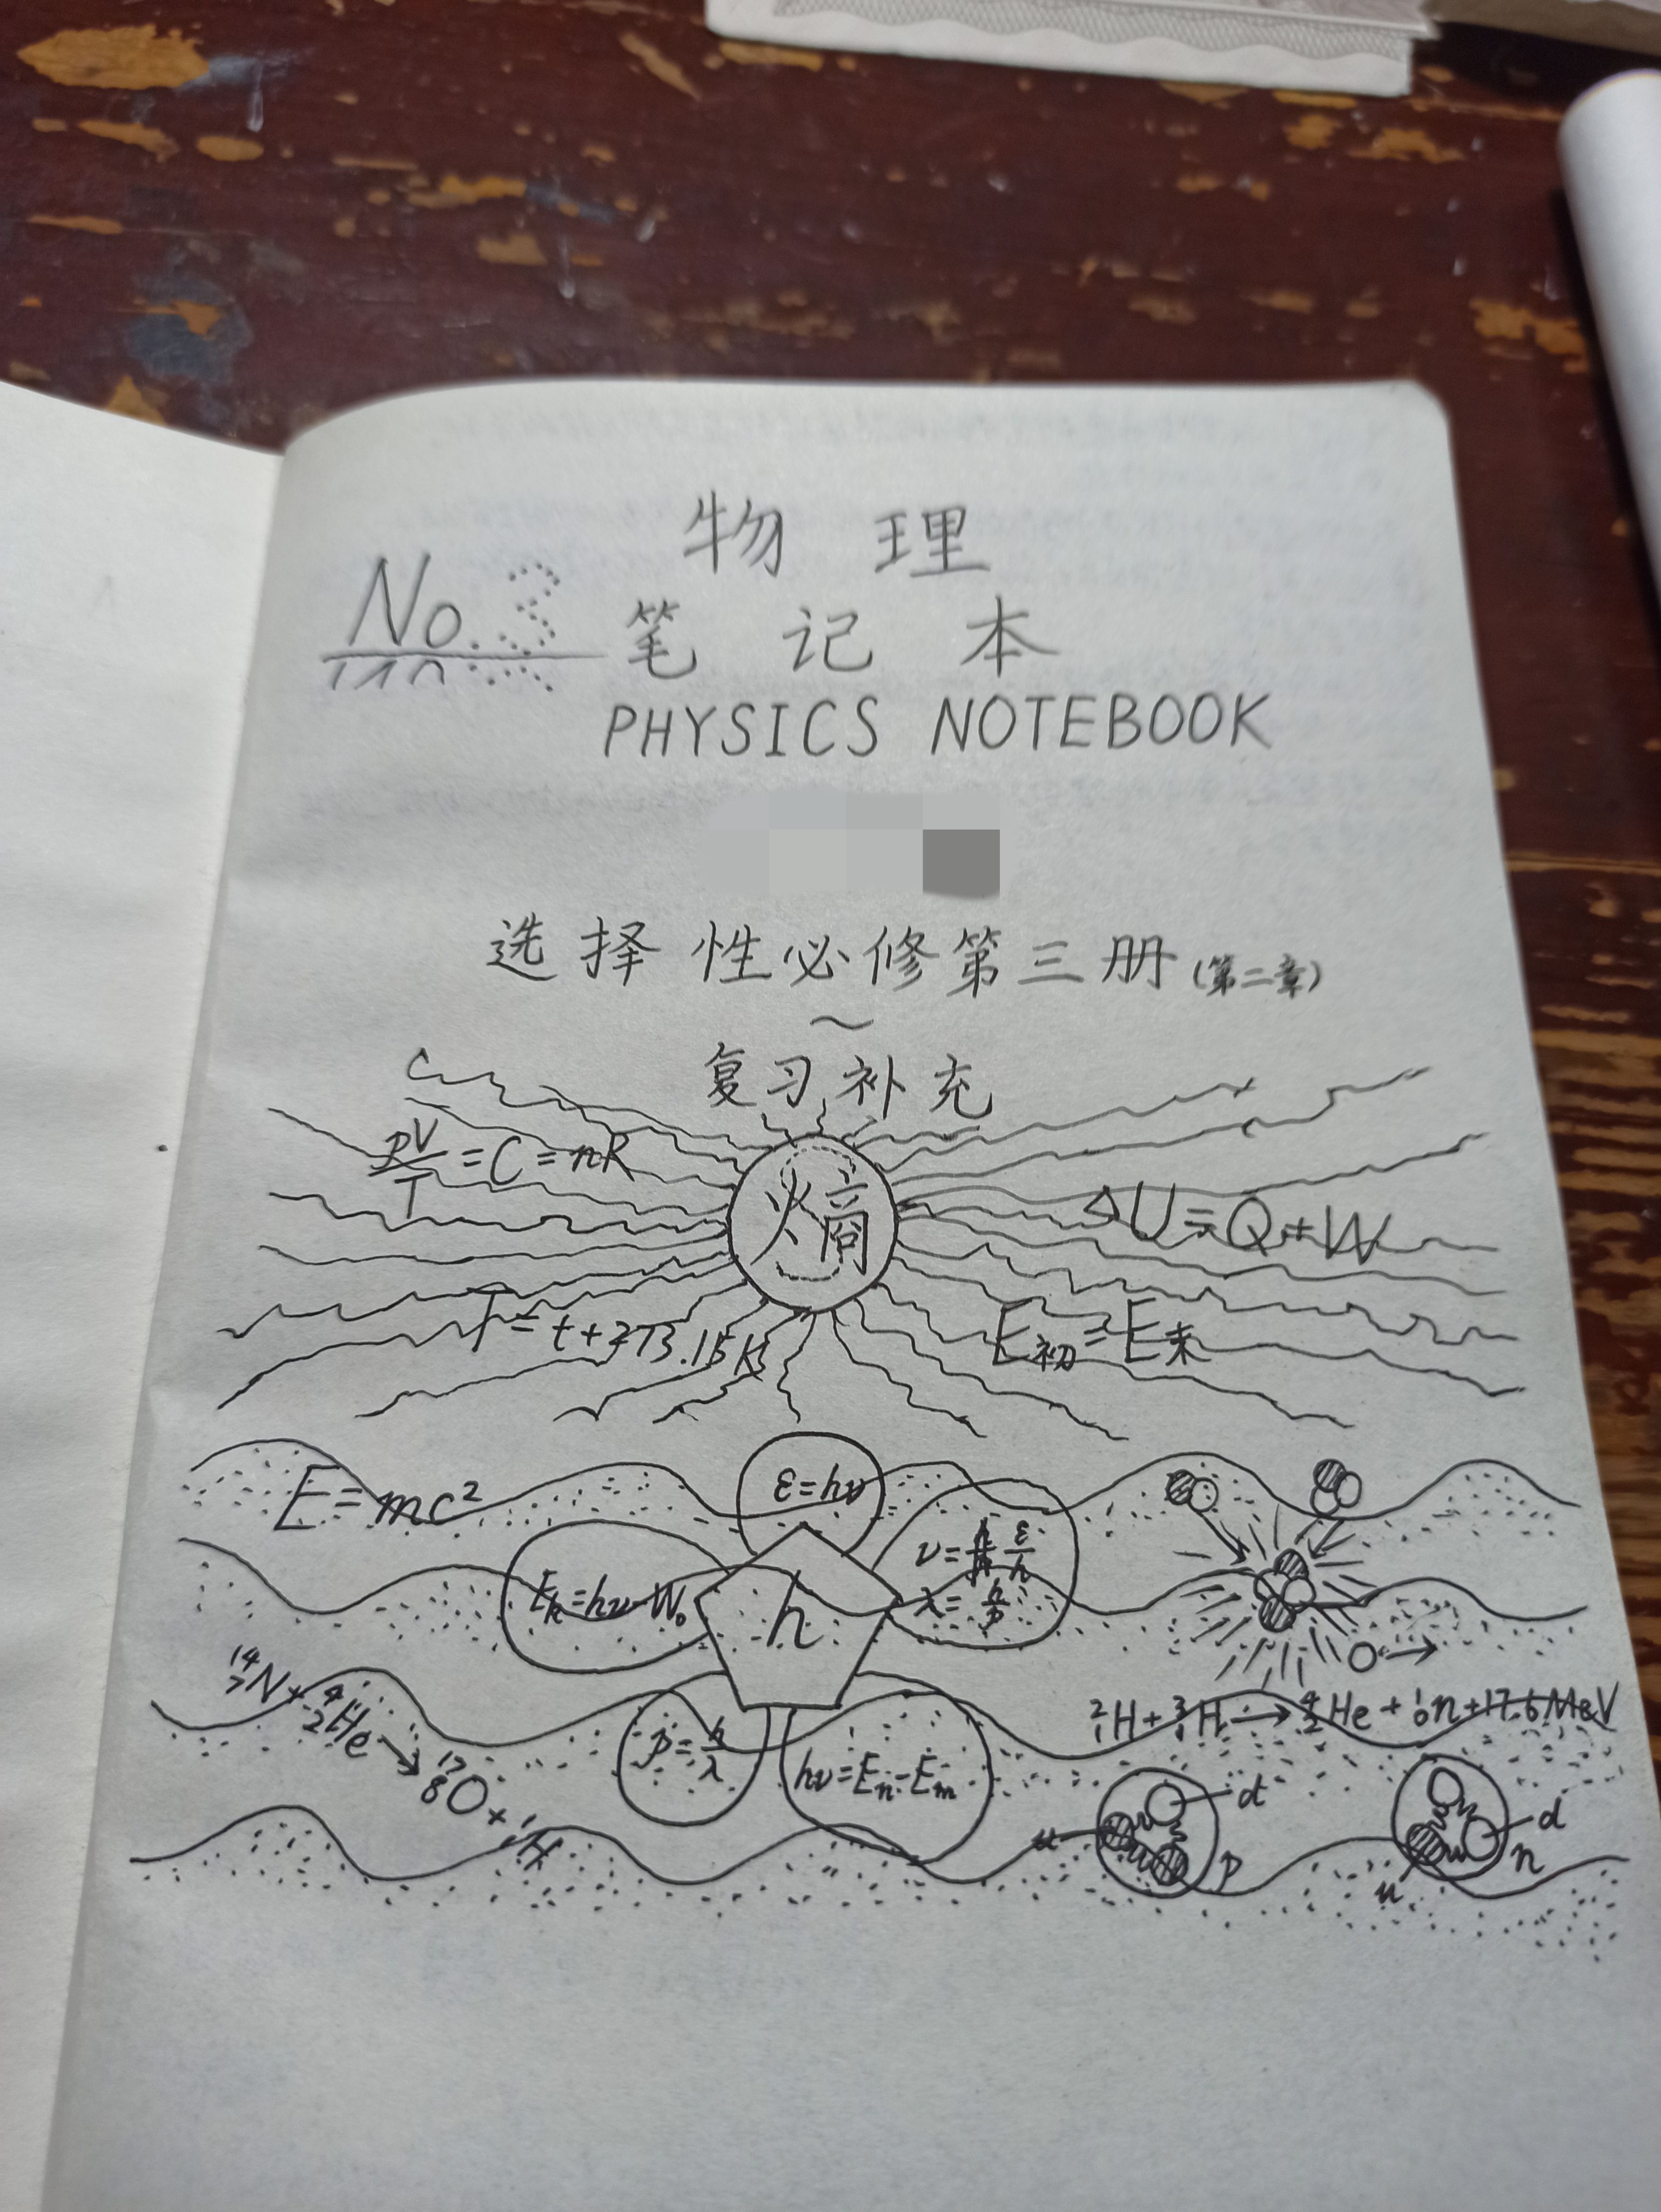 物理
No.3
笔记本
PHYSICS NOTEBOOK
选择性必修第三册(第二章)
~
复习补充
PV/T=C=nR
熵
ΔU=Q+W
T=t+273.15K
E初=E末
E=mc²
ε=hν
Ek=hν-W₀
h
ν=ε/h
λ=h/p
¹⁴₇N+⁴₂He→¹⁷₈O+¹₁H
p=h/λ
hν=En-Em
²₁H+³₁H→⁴₂He+¹₀n+17.6MeV
d
u
p
d
u
n